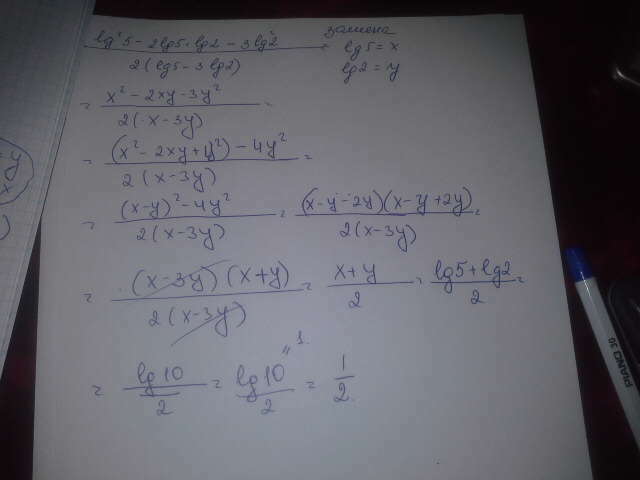 lg²5 - 2lg5·lg2 - 3lg²2 / 2(lg5 - 3lg2) =
замена
lg5 = x
lg2 = y
= x² - 2xy - 3y² / 2(x - 3y) =
= (x² - 2xy + y²) - 4y² / 2(x - 3y) =
= (x-y)² - 4y² / 2(x - 3y) = (x - y - 2y)(x - y + 2y) / 2(x - 3y) =
= (x - 3y)(x + y) / 2(x - 3y) = x + y / 2 = lg5 + lg2 / 2 =
= lg10 / 2 = lg10 " 1. / 2 = 1 / 2.
= y
x
)
PIANO 30